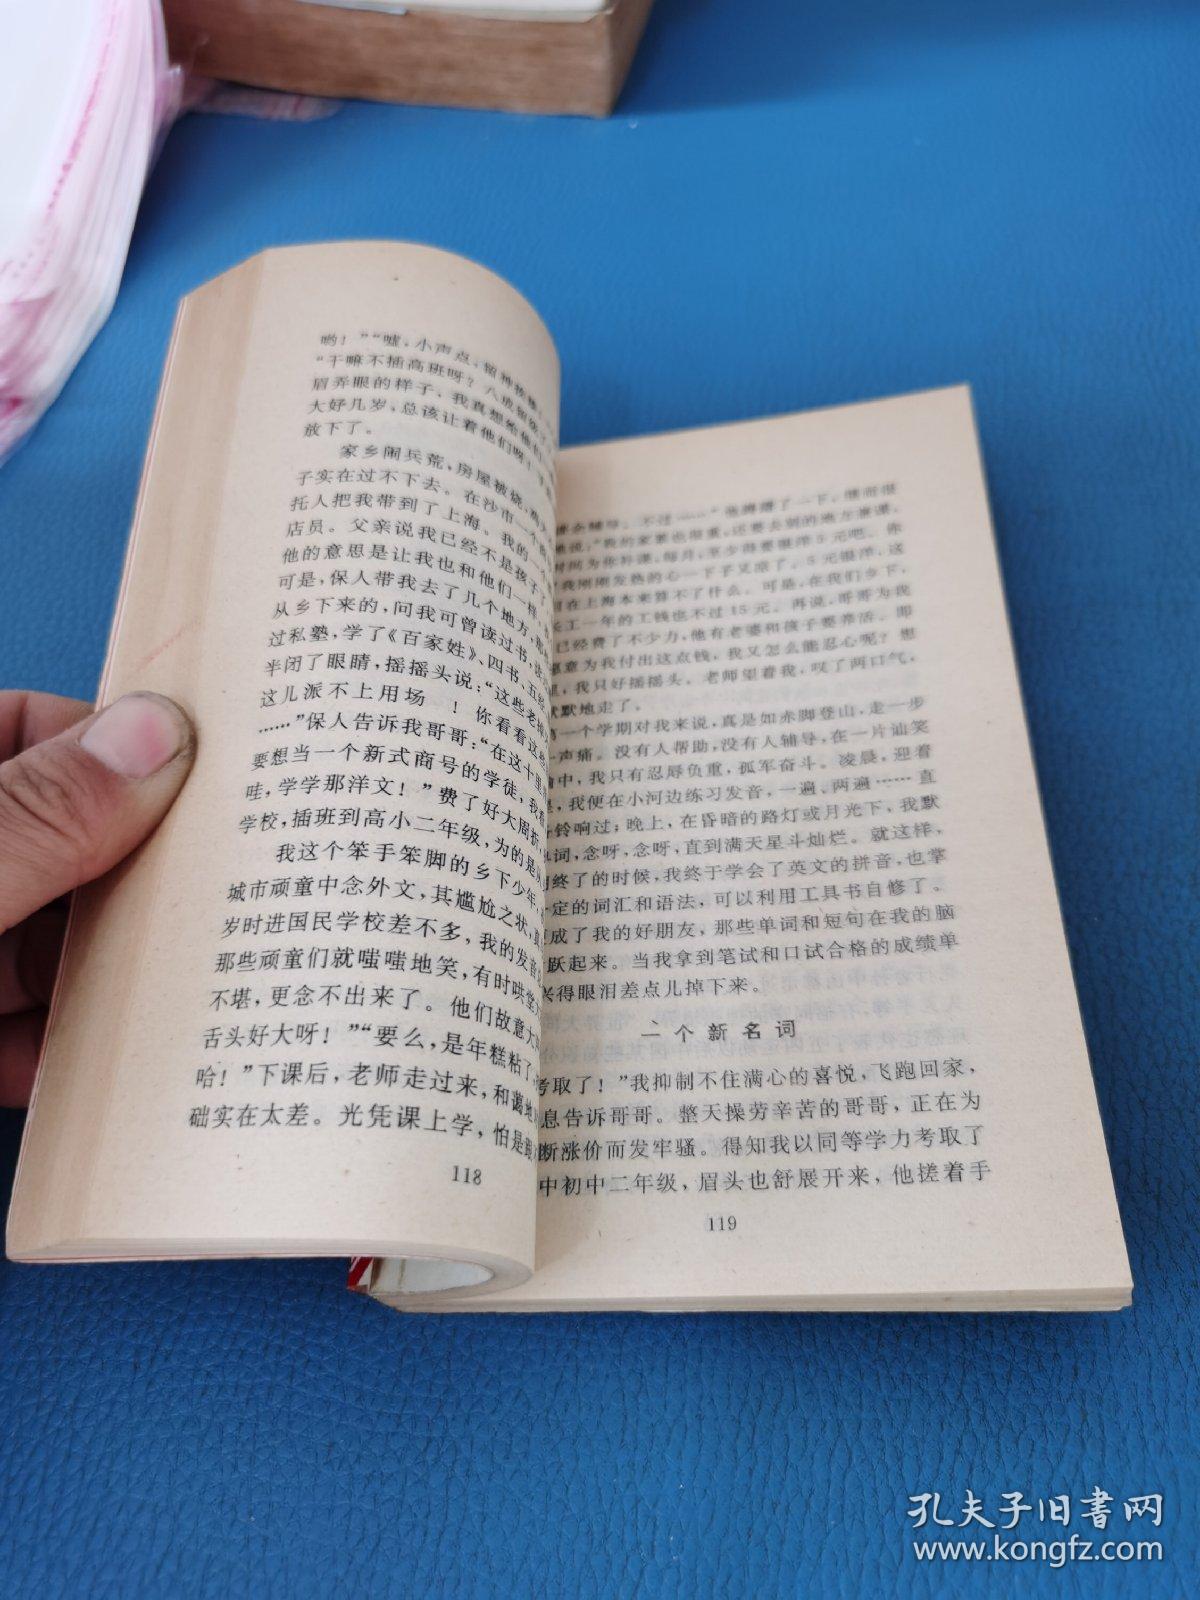 哟！”“嘘，小声点，留神
“干嘛不插高班呀？八成
眉弄眼的样子，我真想给他们
大好几岁，总该让着他们呀！手
放下了。
家乡闹兵荒，房屋被烧，
子实在过不下去。在沙市一个
托人把我带到了上海。我的一个
店员。父亲说我已经不是孩子了，
他的意思是让我也和他们一样，
可是，保人带我去了几个地方，那
从乡下来的，问我可曾读过书，
过私塾，学了《百家姓》、四书、五经，
半闭了眼睛，摇摇头说：“这些老掉
这儿派不上用场！你看看这些
……”保人告诉我哥哥：“在这十里
要想当一个新式商号的学徒，我看
哇，学学那洋文！”费了好大周折，
学校，插班到高小二年级，为的是
我这个笨手笨脚的乡下少年，
城市顽童中念外文，其尴尬之状，真
岁时进国民学校差不多，我的发音
那些顽童们就嗤嗤地笑，有时哄堂
不堪，更念不出来了。他们故意大
舌头好大呀！”“要么，是年糕粘了
哈！”下课后，老师走过来，和蔼地
础实在太差。光凭课上学，怕是跟
118
辅导，不过……”他踌躇了一下，继而很
说：“我的家累也很重，还要去别的地方兼课，
时间为你补课，每月，至少得要银洋5元吧。你
我刚刚发热的心一下子又凉了。5元银洋，这
在上海本来算不了什么。可是，在我们乡下，
长工一年的工钱也不过15元。再说，哥哥为我
已经费了不少力，他有老婆和孩子要养活。即
愿意为我付出这点钱，我又怎么能忍心呢？想
里，我只好摇摇头。老师望着我，叹了两口气，
默默地走了。
第一个学期对我来说，真是如赤脚登山，走一步
一声痛。没有人帮助，没有人辅导，在一片讪笑
中，我只有忍辱负重，孤军奋斗。凌晨，迎着
，我便在小河边练习发音，一遍、两遍……直
铃响过；晚上，在昏暗的路灯或月光下，我默
词，念呀，念呀，直到满天星斗灿烂。就这样，
终了的时候，我终于学会了英文的拼音，也掌
一定的词汇和语法，可以利用工具书自修了。
成了我的好朋友，那些单词和短句在我的脑
跃起来。当我拿到笔试和口试合格的成绩单
兴得眼泪差点儿掉下来。
一个新名词
考取了！”我抑制不住满心的喜悦，飞跑回家，
息告诉哥哥。整天操劳辛苦的哥哥，正在为
断涨价而发牢骚。得知我以同等学力考取了
中初中二年级，眉头也舒展开来，他搓着手
119
孔夫子旧书网
www.kongfz.com